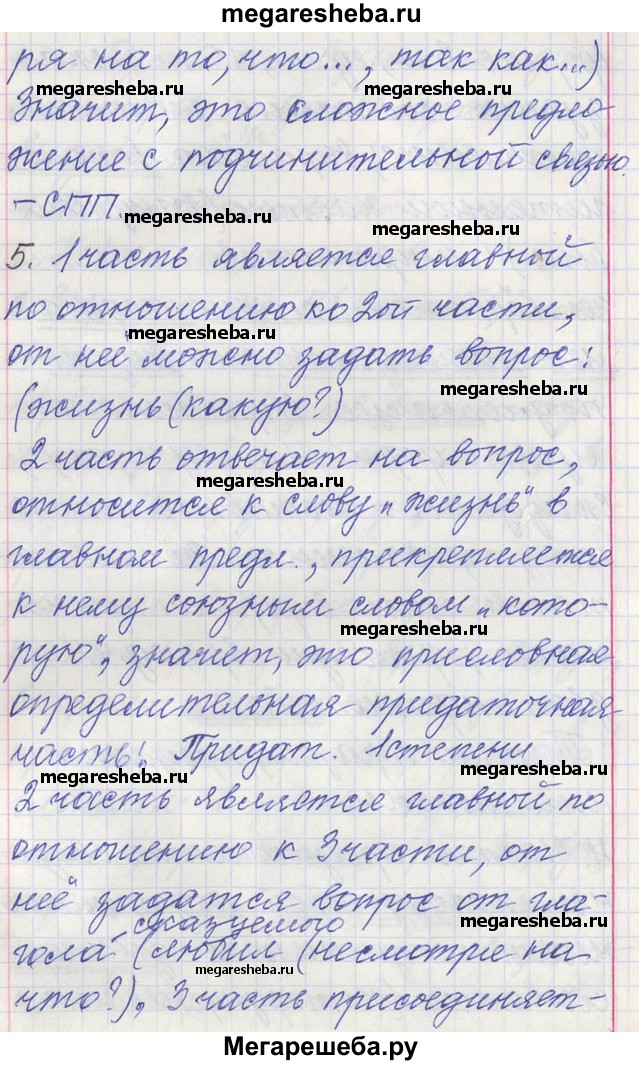 megaresheba.ru
ря на то, что..., так как...)
megaresheba.ru
megaresheba.ru
Значит, это сложное предло
жение с подчинительной связью.
– СПП.
megaresheba.ru
5. 1 часть является главной
по отношению ко 2ой части,
megaresheba.ru
от неё можно задать вопрос:
megaresheba.ru
(жизнь (какую?)
2 часть отвечает на вопрос,
megaresheba.ru
относится к слову „жизнь“ в
главном предл., прикрепляется
к нему союзным словом „кото-
megaresheba.ru
рую“, значет, это присловная
определительная придаточная
часть! Придат. 1степени
megaresheba.ru
megaresheba.ru
2 часть является главной по
отношению к 3 части, от
неё задатся вопрос от гла-
сказуемого
megaresheba.ru
гола (любил (несмотре на
megaresheba.ru
что?), 3 часть присоединяет-
Мегарешеба.ру